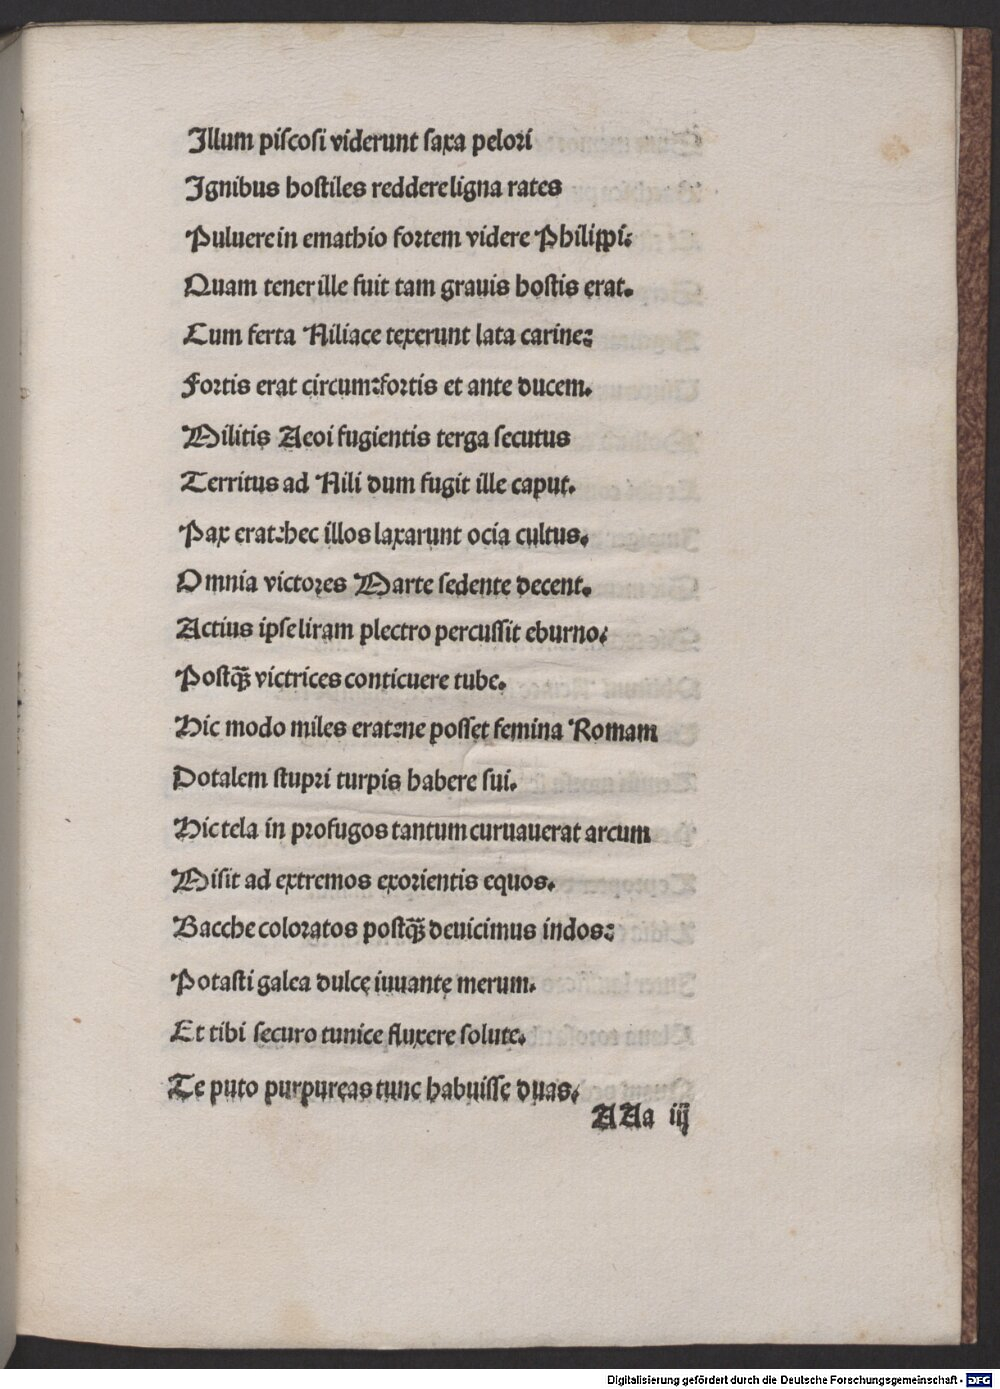 Illum piſcoſi viderunt ſaxa pelori
Ignibus hoſtiles reddere ligna rates
Puluere in emathio fortem videre Philippi:
Quam tener ille fuit tam grauis hoſtis erat.
Cum ferta Niliace texerunt lata carine:
Fortis erat circum:fortis et ante ducem.
Militis Aeoi fugientis terga ſecutus
Territus ad Nili dum fugit ille caput.
Pax erat:hec illos laxarunt ocia cultus.
Omnia victores Marte ſedente decent.
Actius ipſe liram plectro percuſſit eburno:
Poſtꝙ̃ victrices conticuere tube.
Hic modo miles erat:ne poſſet femina Romam
Dotalem ſtupri turpis habere ſui.
Hic tela in profugos tantum curuauerat arcum
Miſit ad extremos exorientis equos.
Bacche coloratos poſtꝙ̃ deuicimus indos:
Potaſti galea dulce iuuante merum.
Et tibi ſecuro tunice fluxere ſolute.
Te puto purpureas tunc habuiſſe duas.
AAa iij
Digitalisierung gefördert durch die Deutsche Forschungsgemeinschaft - DFG